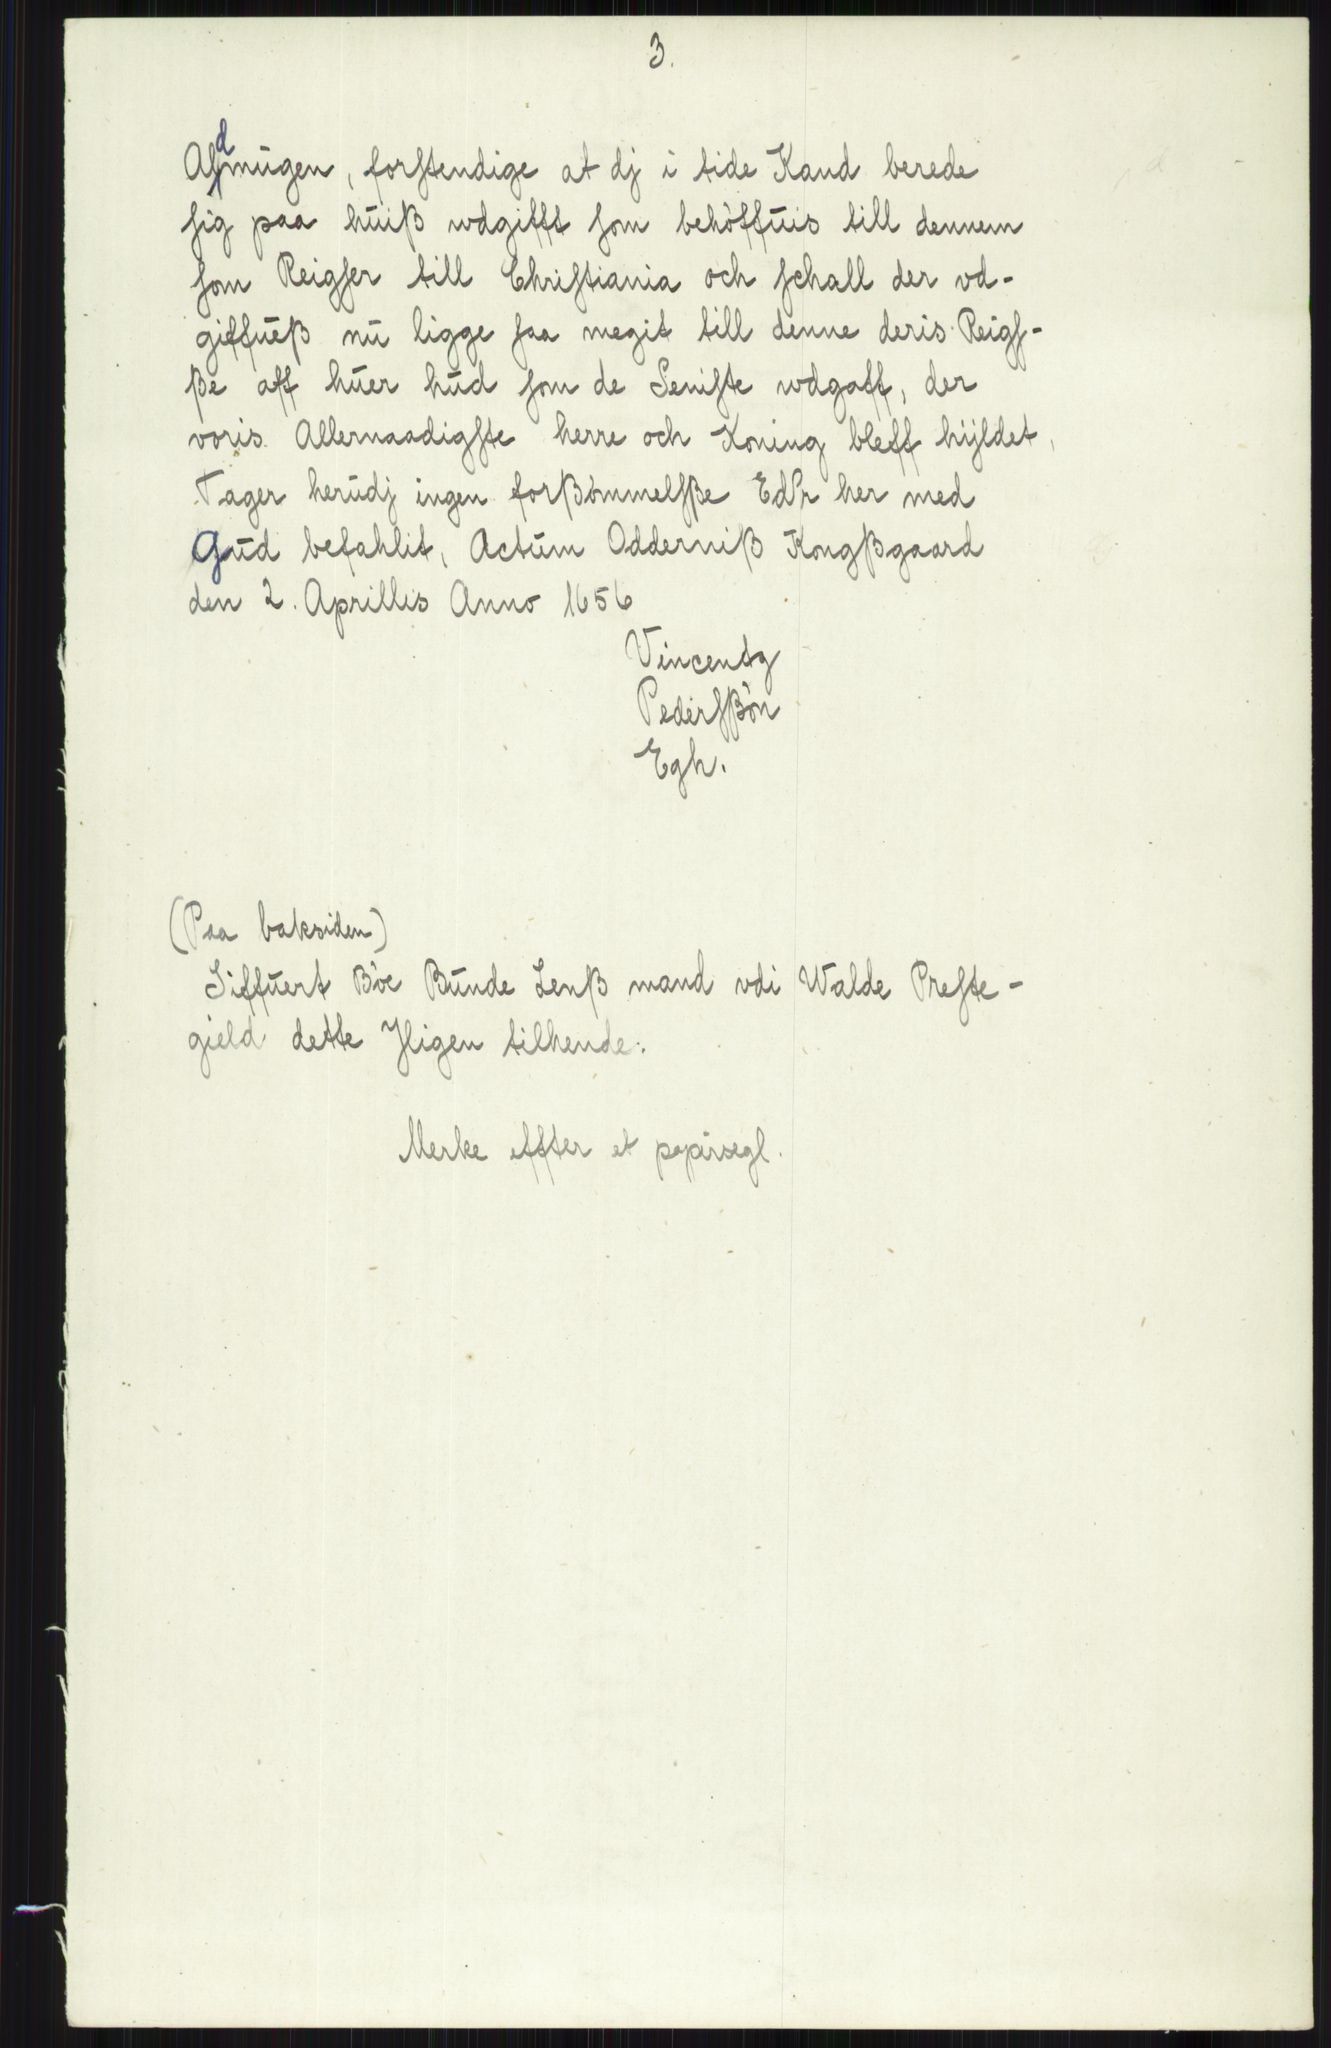 3.
Aldmügen, forstendige at dj i tide Kand berede
sig paa hüiß wdgifft som behöffüis till dennem
som Reigser till Christiania och schall der vd-
giffüeß nü ligge saa megit till denne deris Reigs-
ße aff hüer hüd som de Seniste wdgaff, der
voris Allernaadigste herre och Koning bleff hÿldet,
Tager herüdj ingen forßömmelsße Edr her med
Güd befahlit, Actüm Odderniß Kongßgaard
den 2. Aprillis Anno 1656
Vincendz
Pederssßön
Egh.
(Paa baksiden)
Siffüert Böe Bünde Lenß mand vdi Walde Preste-
gield dette Jligen tilhende.
Merke effter et papirsegl.